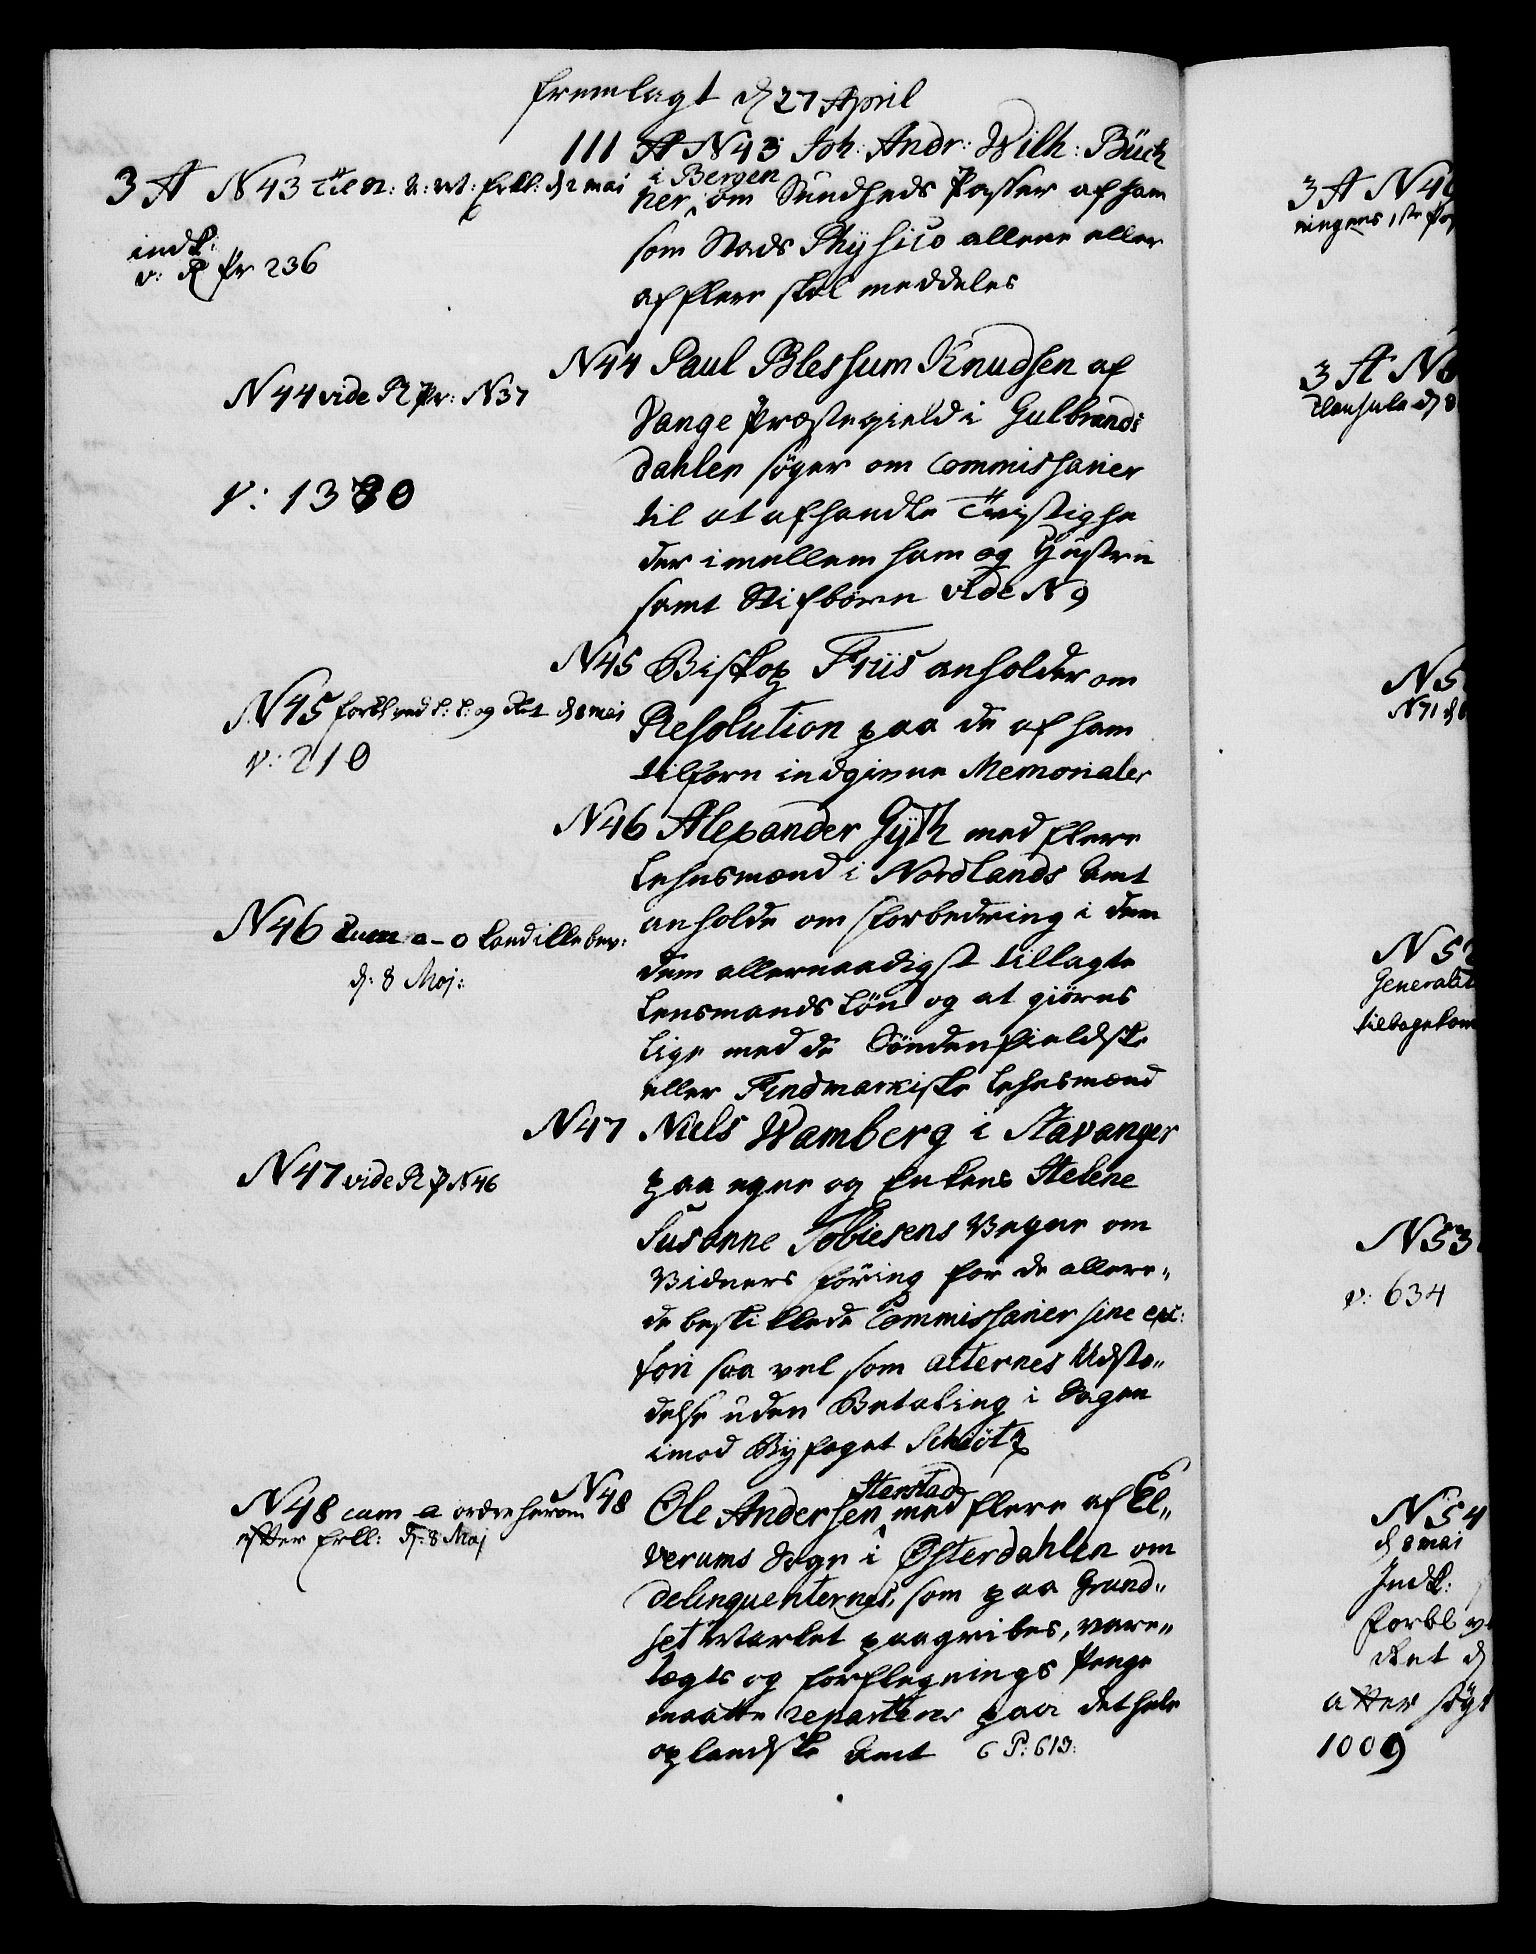 fremlagt d 27 April
111 A N43 Joh: Andr: Wilh: Büch
ner i Bergen om Sundheds Passer af ham
som Stads Physico allene eller
af flere skal meddeles
3 A N43 til n: v: et: Erkl: d 2 mai
indk:
v: R Pr 236
N44 Paul Blessum Knudsen af
Vange Præstegield i Gulbrands
dahlen søger om Commissarier
til at afhandle Tvistighe
der imellem ham og Hustru
samt Stifbørn vide N 9
N44 vide R Pr: N37
v: 1380
N45 Biskop Friis anholder om
Resolution paa de af ham
tilforn indgivne Memorialer
N45 forbl ved C: C: og Ret d 8 mai
v: 210
N46 Alexander Gyth med flere
Lehnsmænd i Nordlands Amt
anholde om Forbedring i den
dem allernaadigst tillagte
Lensmands Løn og at giøres
lige med de Søndenfieldske
eller Findmarkiske Lehnsmænd
N46 cum a-o kand ikke bev:
d: 8 Maj:
N47 Niels Wamberg i Stavanger
paa egne og Enkens Helene
Susanne Tobiesens Vegne om
Vidners føring for de allere„
de bestikkede Commissarier sine exc:
fori saa vel som acternes Udste„
delse uden Betaling i Sagen
imod Byfoget Schiøtz
N47 vide R P N46
N48 Ole Andersen Stenstad med flere af El„
verums Sogn i Østerdahlen om
delinquenternes, som paa Grund„
set Market paagribes, vare„
tægts og forflegnings Penge
maatte reparteres paa det hele
oplandske Amt 6 P: 613:
N48 cum a ordre herom
efter Erkl: d: 8 Maj
3 A N4
ningens 1ste Po
3 A N
Clausula d 8
N5
N71 d
N52
Generalit
tilbagekom
N53
v: 634
N54
d 8 mai
Indk:
forbl v
Ret d
atter søgt
1009